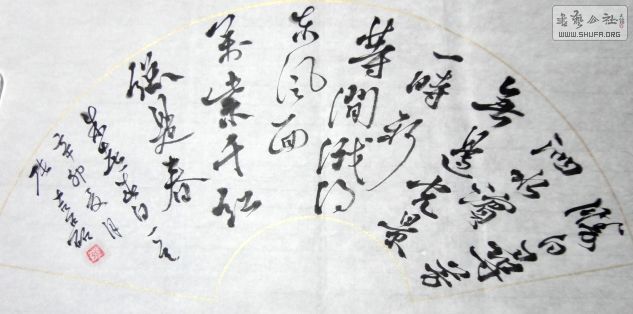 勝日尋芳
泗水濱
無邊光景
一時新
等閒識得
東風面
萬紫千紅
總是春
朱熹春日一首
辛卯夏月
書艺公社
WWW.SHUFA.ORG